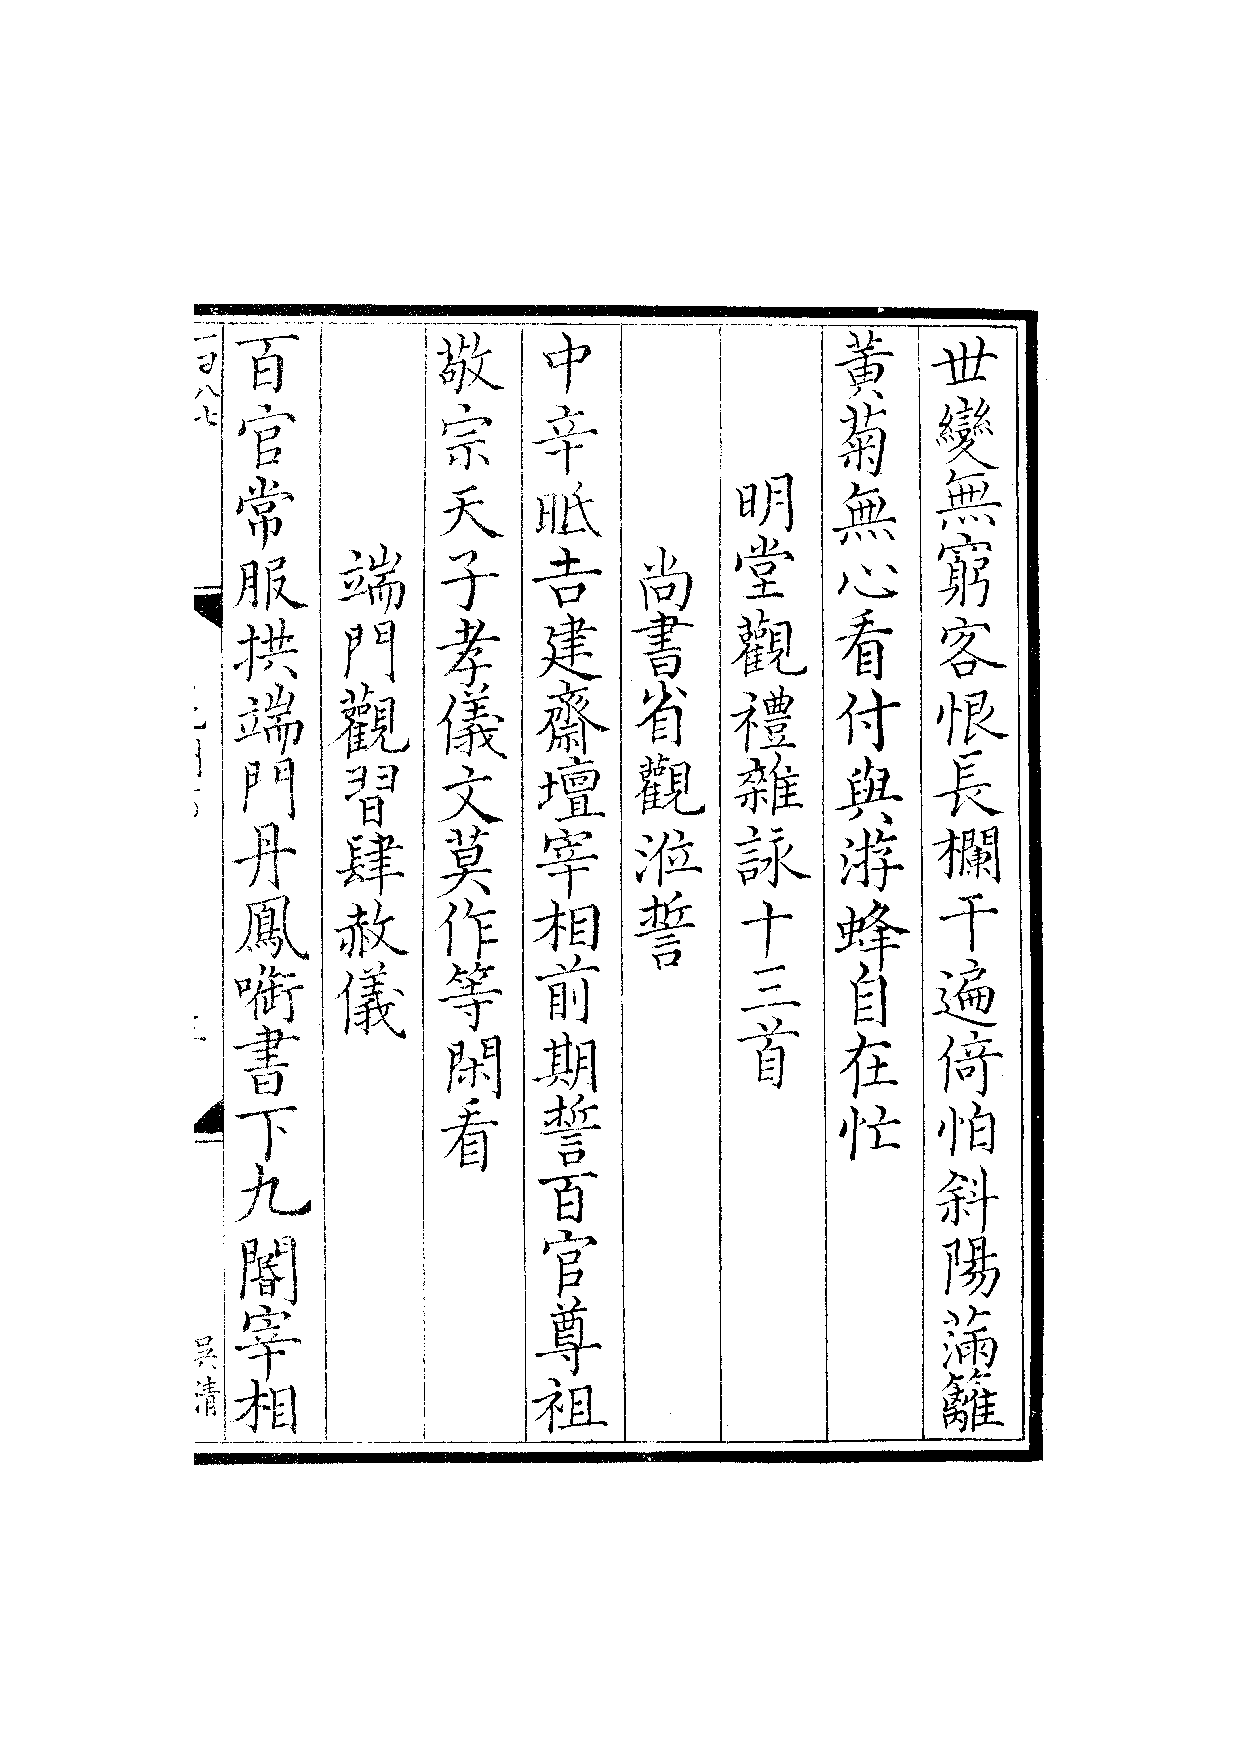 世變無窮客恨長欄干遍倚怕斜陽滿籬
黄菊無心看付與游蜂自在忙
明堂觀禮雜詠十三首
尚書省觀涖誓
中辛眡吉建齋壇宰相前期誓百官尊祖
敬宗天子孝儀文莫作等閑看
端門觀習肆赦儀
百官常服拱端門丹鳳㗸書下九閽宰相
吴清